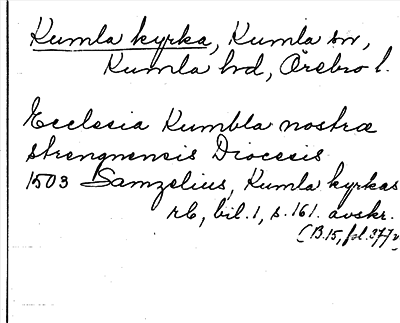 Kumla kyrka, Kumla sn,
Kumla hd, Örebro l.
Ecclesia Kumbla nostræ
strengnensis Diocesis
1503 Samzelius, Kumla kyrkas
rb, bil. 1, s. 161. avskr.
(B.15, fol. 377v